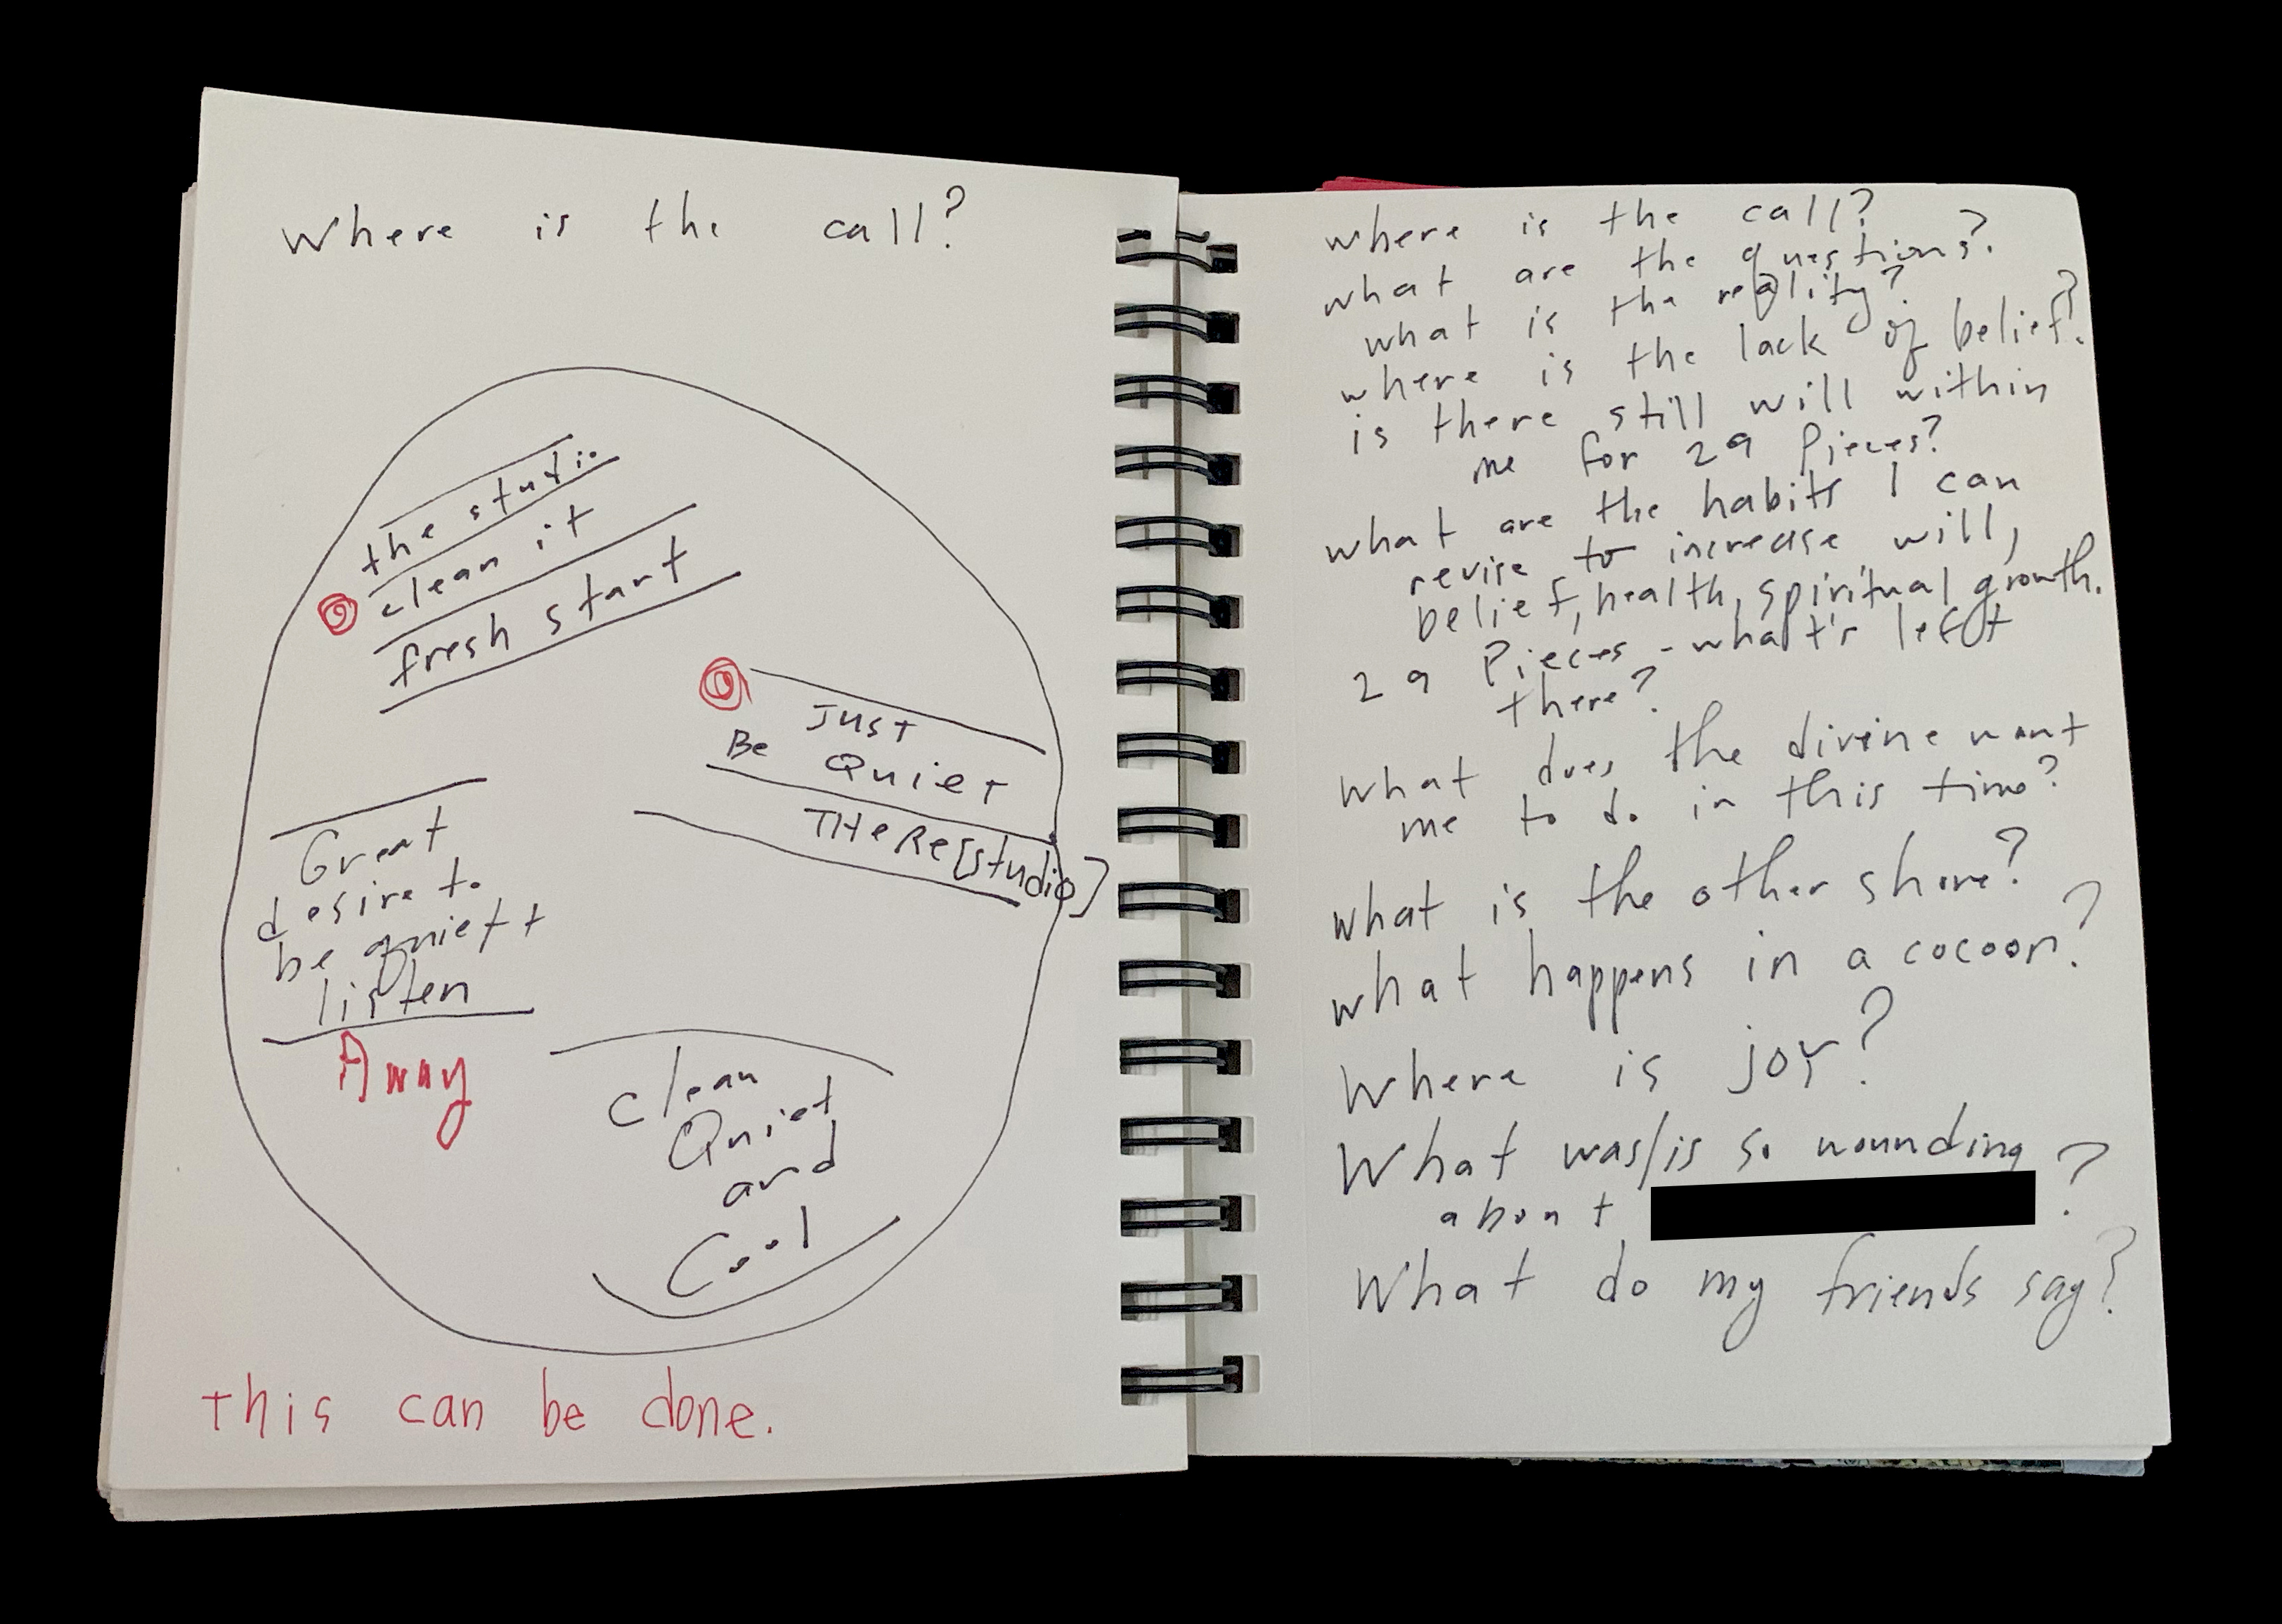 where is the call?
the studio
clean it
fresh start
Just
Be Quiet
THERE [studio]
Great
desire to
be quiet +
listen
Away
Clean
Quiet
and
Cool
this can be done.
where is the call?
what are the questions?
what is the reality?
where is the lack of belief?
is there still will within
me for 29 Pieces?
what are the habits I can
revise to increase will,
belief, health, spiritual growth.
29 Pieces - what's left
there?
what does the divine want
me to do in this time?
what is the other shore?
what happens in a cocoon?
Where is joy?
What was/is so wounding
about ?
What do my friends say?